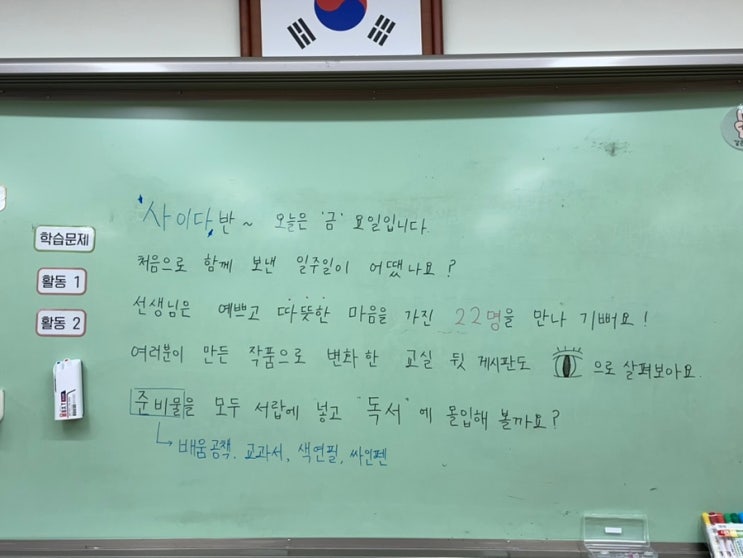 사이다반~ 오늘은 '금'요일입니다.
학습문제
처음으로 함께 보낸 일주일이 어땠나요?
활동 1
선생님은 예쁘고 따뜻한 마음을 가진 22명을 만나 기뻐요!
활동 2
여러분이 만든 작품으로 변화한 교실 뒷 게시판도 으로 살펴보아요.
준비물을 모두 서랍에 넣고 "독서"에 몰입해 볼까요?
배움공책, 교과서, 색연필, 싸인펜